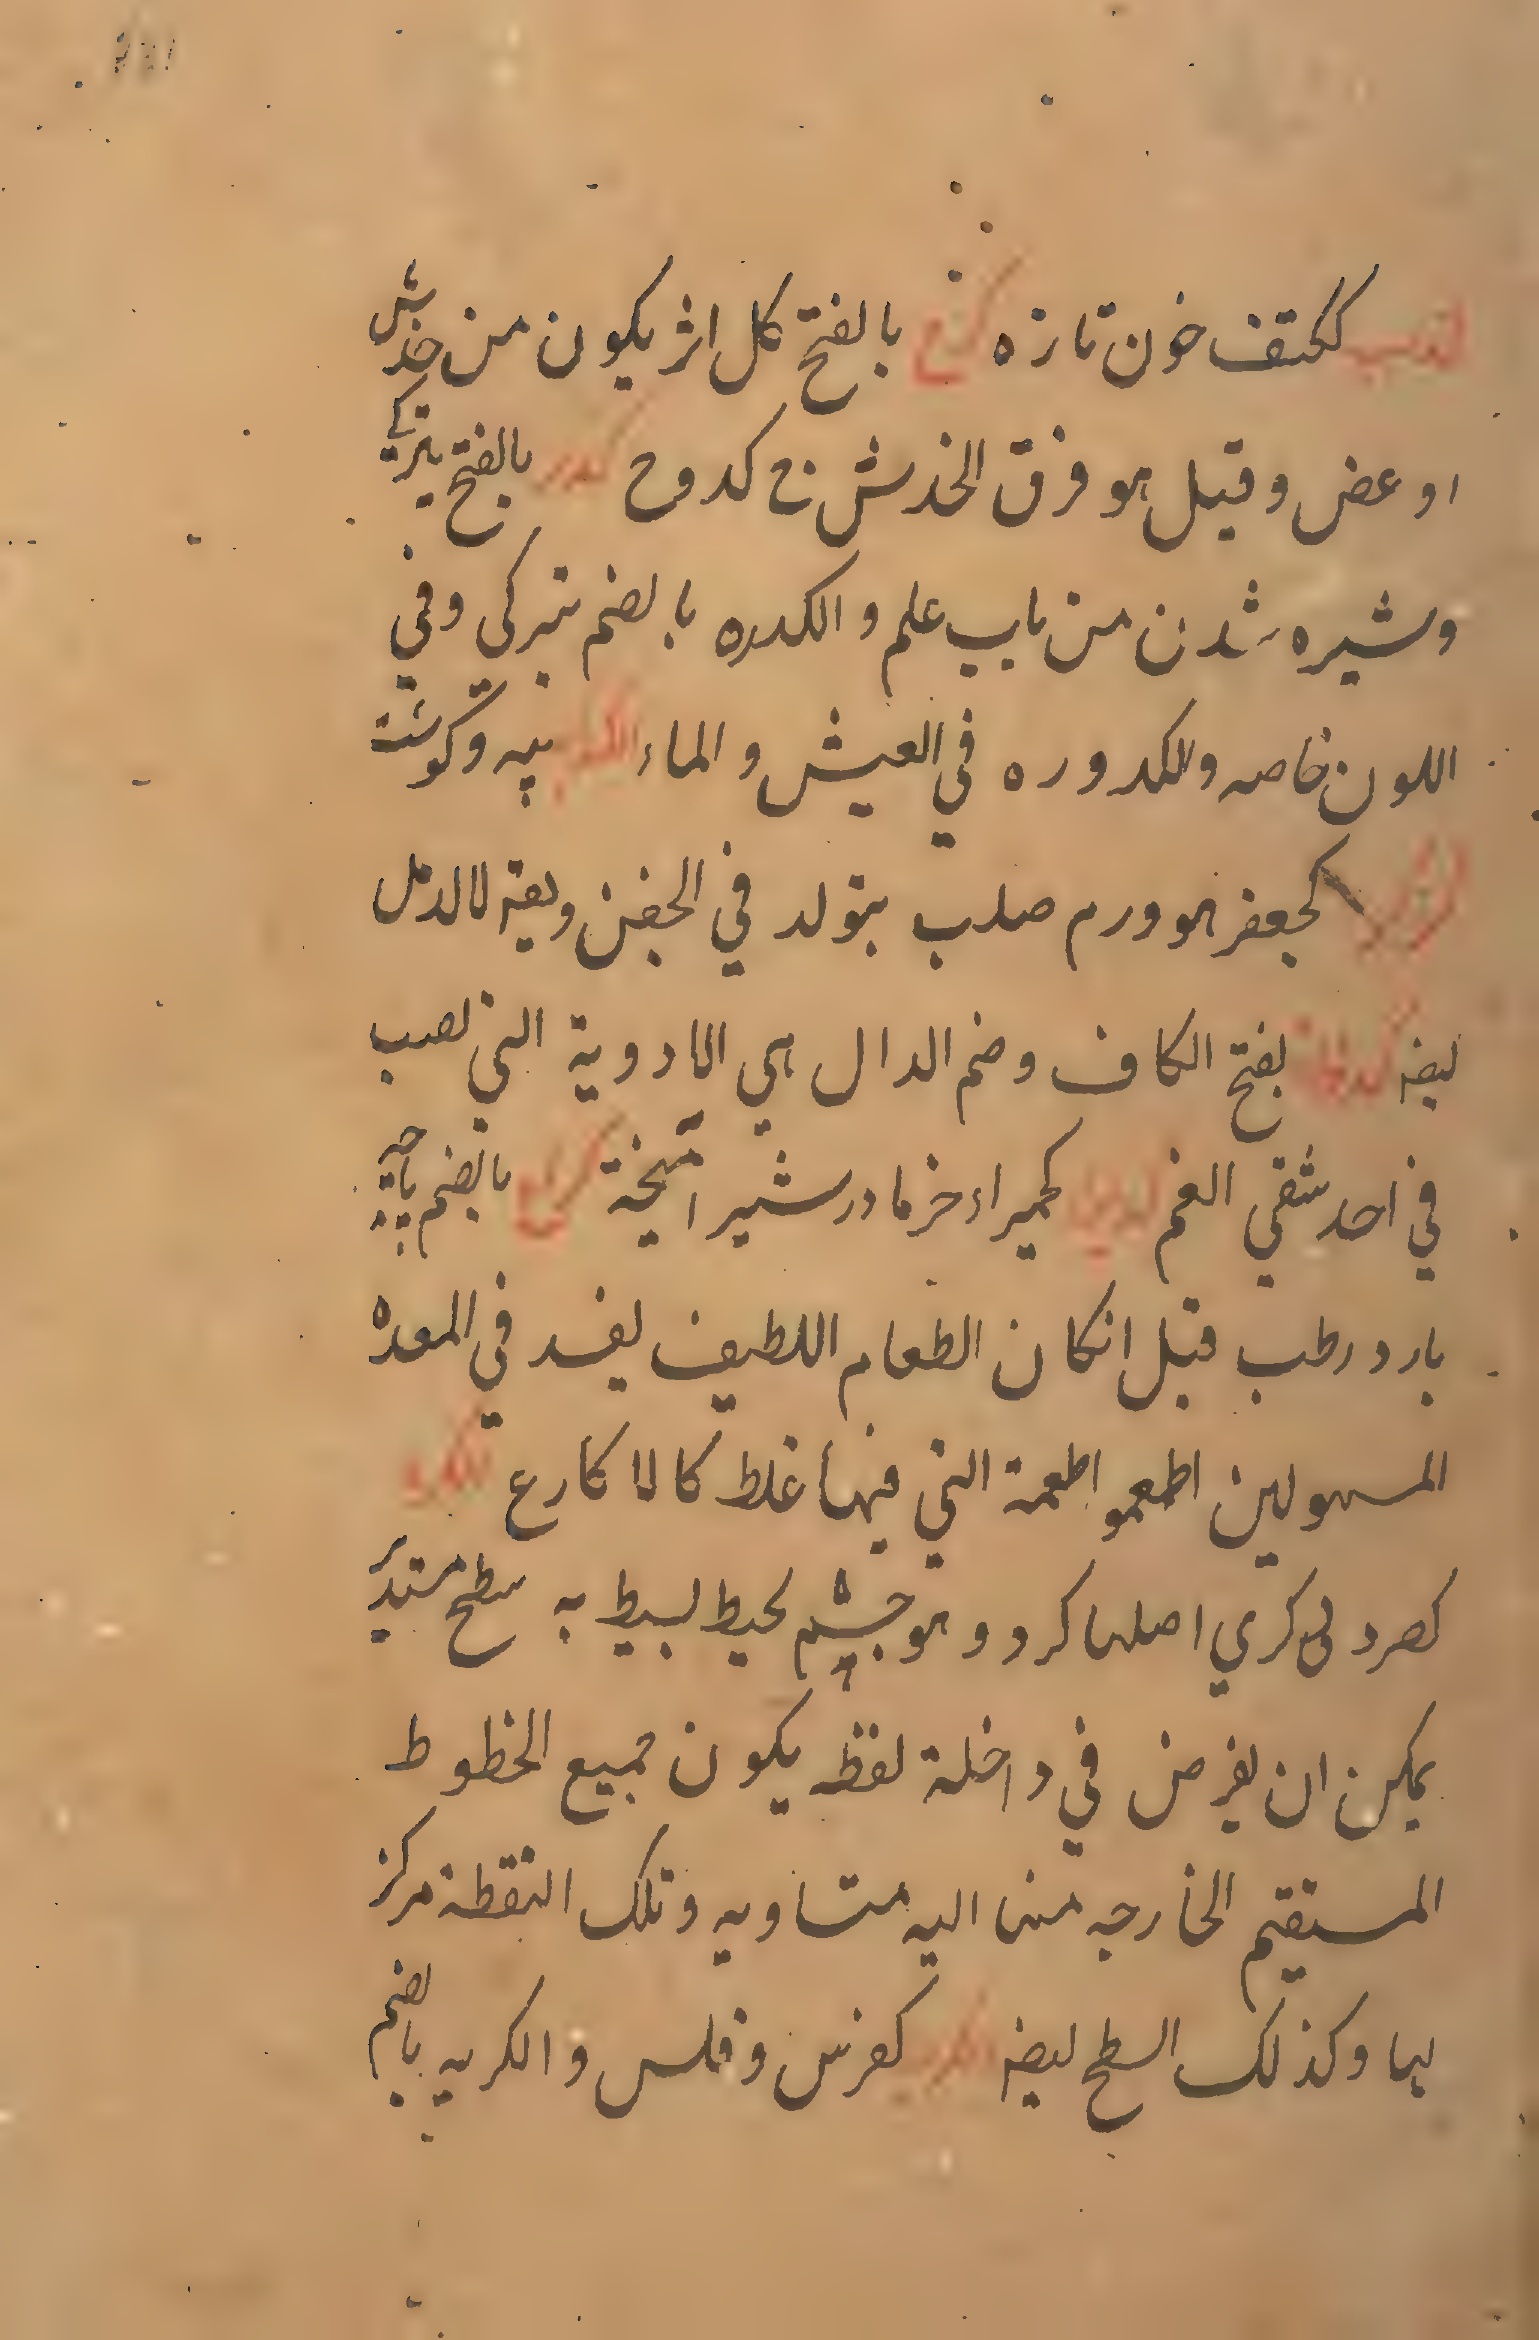 ككتف خون تازه كدح بالفتح كل اثر يكون من خدش
او عض و قيل هو فرق الخدش ج كدوح كدر بالفتح تيركي
و تيره شدن من باب علم و الكدره بالضم تيركي و في
اللون خاصه و الكدوره في العيش و الماء پيه و كوشت
كجعفر هو ورم صلب يتولد في الجفن و يعتر لالدمل
ايضه بفتح الكاف و ضم الدال هي الادوية التي تصب
في احد شقي الفم كحميراء خرما در شير آميخة كراع بالضم پاچه
بارد رطب قيل انكان الطعام اللطيف يفسد في المعده
المسهولين اطعمو اطعمة التي فيها غلظ كالاكارع
كصرد كري اصلها كرو و هو جسم يحيط بسيط به سطح مستدير
يمكن ان يفرض في داخلة نقطه يكون جميع الخطوط
المستقيم الخارجه منها اليه متساويه و تلك النقطة مركز
لها و كذلك السطح ايضه كفرس و فلس و الكربه بالضم